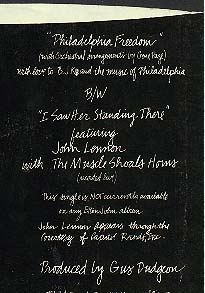 "Philadelphia Freedom"
(with Orchestral arrangements by Gene Page)
with love to B.J.K and the music of Philadelphia
B/W
"I Saw Her Standing There"
featuring
John Lennon
with The Muscle Shoals Horns
(recorded live)
This single is NOT currently available
on any Elton John album
John Lennon appears through the
courtesy of Capitol Records, Inc.
Produced by Gus Dudgeon